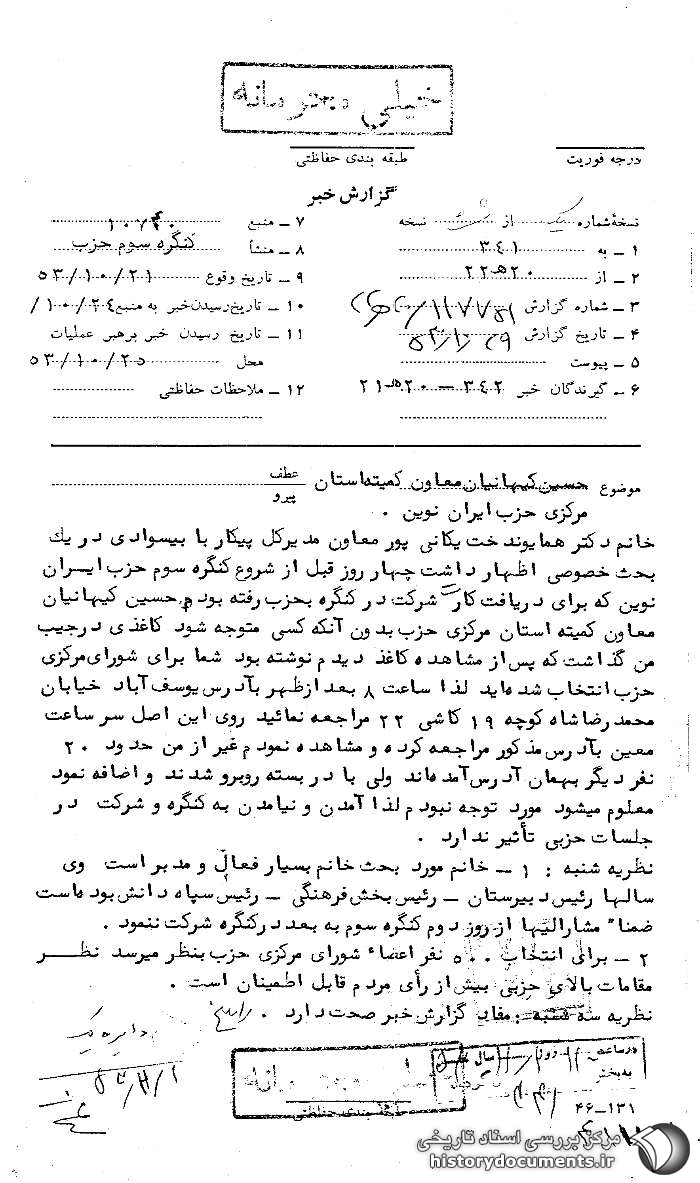 خیلی محرمانه
درجه فوریت
طبقه بندی حفاظتی
گزارش خبر
نسخهٔ شماره یک از نسخه
۱ ـ به ۳۴۱
۲ ـ از ۲۰هـ۲۲
۳ ـ شماره گزارش
۴ ـ تاریخ گزارش
۵ ـ پیوست
۶ ـ گیرندگان خبر ۳۴۲ ـ ۲۰هـ۲۱
۷ ـ منبع
۸ ـ منشأ کنگره سوم حزب
۹ ـ تاریخ وقوع ۵۳/۱۰/۲۱
۱۰ ـ تاریخ رسیدن خبر به منبع ۱۰/۲۴/
۱۱ ـ تاریخ رسیدن خبر برهبر عملیات
محل ۵۳/۱۰/۲۵
۱۲ ـ ملاحظات حفاظتی
موضوع حسین کیهانیان معاون کمیته استان
عطف
پیرو
مرکزی حزب ایران نوین .
خانم دکتر همایوندخت یکانی پور معاون مدیرکل پیکار با بیسوادی در یک
بحث خصوصی اظهار داشت چهار روز قبل از شروع کنگره سوم حزب ایران
نوین که برای دریافت کارت شرکت در کنگره بحزب رفته بودم حسین کیهانیان
معاون کمیته استان مرکزی حزب بدون آنکه کسی متوجه شود کاغذی در جیب
من گذاشت که پس از مشاهده کاغذ دیدم نوشته بود شما برای شورای مرکزی
حزب انتخاب شده اید لذا ساعت ۸ بعد ازظهر بآدرس یوسف آباد خیابان
محمد رضا شاه کوچه ۱۹ کاشی ۲۲ مراجعه نمائید روی این اصل سر ساعت
معین بآدرس مذکور مراجعه کرده و مشاهده نمودم غیر از من حدود ۲۰
نفر دیگر بهمان آدرس آمده اند ولی با در بسته روبرو شدند و اضافه نمود
معلوم میشود مورد توجه نبودم لذا آمدن و نیامدن به کنگره و شرکت در
جلسات حزبی تأثیر ندارد .
نظریه شنبه : ۱ ـ خانم مورد بحث خانم بسیار فعال و مدبر است وی
سالها رئیس دبیرستان ـ رئیس بخش فرهنگی ـ رئیس سپاه دانش بوده است
ضمناً مشارالیها از روز دوم کنگره سوم به بعد در کنگره شرکت ننمود .
۲ ـ برای انتخاب ۵۰۰ نفر اعضاء شورای مرکزی حزب بنظر میرسد نظر
مقامات بالای حزبی بیش از رأی مردم قابل اطمینان است .
نظریه سه شنبه : مفاد گزارش خبر صحت دارد .
دایره یک
طبقه بندی حفاظتی
۴۶ـ۱۳۱
مرکز بررسی اسناد تاریخی
historydocuments.ir